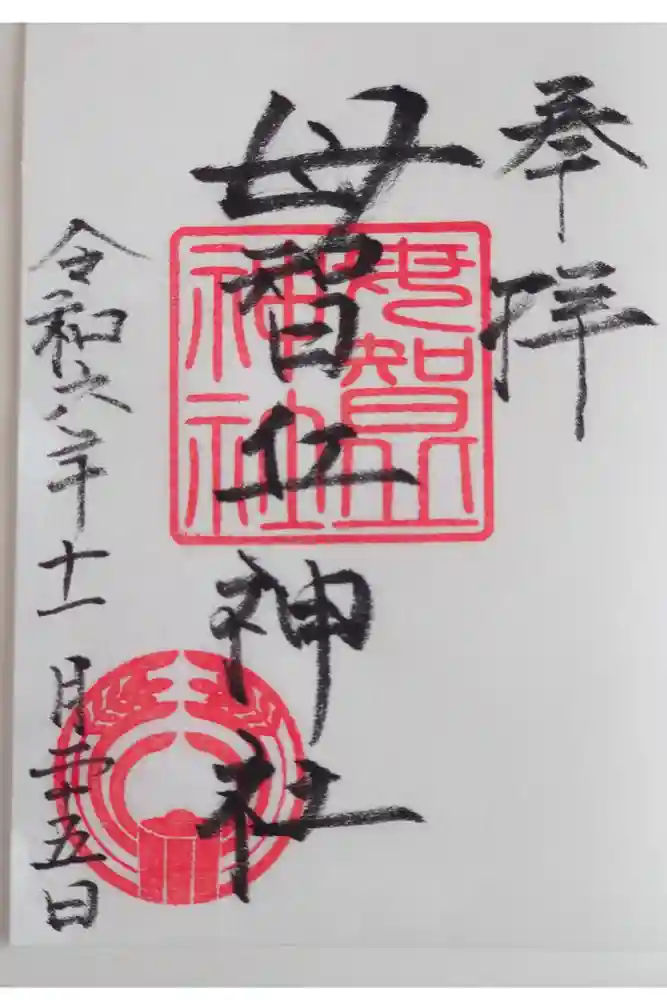 奉拝
母智丘神社
母智丘
神社
令和六年十一月二十五日